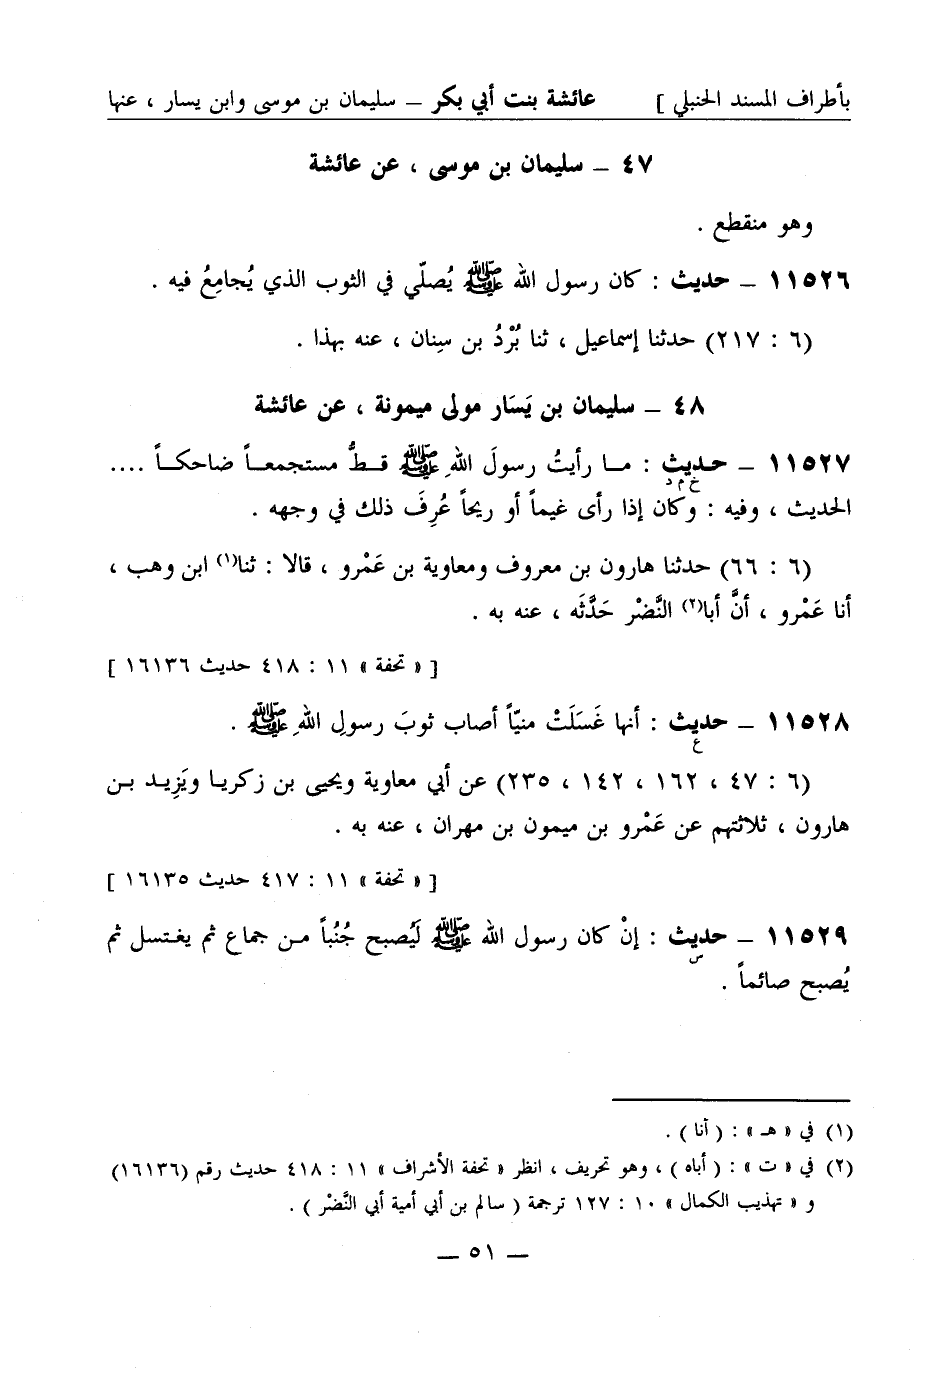 بأطراف المسند الحنبلي ] عائشة بنت أبي بكر – سليمان بن موسى وابن يسار ، عنها
٤٧ – سليمان بن موسى ، عن عائشة
وهو منقطع .
١١٥٢٦ – حديث : كان رسول الله ﷺ يُصلّي في الثوب الذي يُجامِعُ فيه .
(٦ : ٢١٧) حدثنا إسماعيل ، ثنا بُرْدُ بن سِنان ، عنه بهذا .
٤٨ – سليمان بن يَسَار مولى ميمونة ، عن عائشة
١١٥٢٧ – حديث : مـا رأيتُ رسولَ اللهِ ﷺ قـطُّ مستجمعـاً ضاحكـاً ....
خ م د
الحديث ، وفيه : وكان إذا رأى غيماً أو ريحاً عُرِفَ ذلك في وجهه .
(٦ : ٦٦) حدثنا هارون بن معروف ومعاوية بن عَمْرو ، قالا : ثنا(١) ابن وهب ،
أنا عَمْرو ، أنَّ أبا(٢) النَّضْر حَدَّثَه ، عنه به .
[ « تحفة » ١١ : ٤١٨ حديث ١٦١٣٦ ]
١١٥٢٨ – حديث : أنها غَسَلَتْ منيّاً أصاب ثوبَ رسولِ اللهِ ﷺ .
ع
(٦ : ٤٧ ، ١٦٢ ، ١٤٢ ، ٢٣٥) عن أبي معاوية ويحيى بن زكريـا ويَزِيـد بـن
هارون ، ثلاثتهم عن عَمْرو بن ميمون بن مهران ، عنه به .
[ « تحفة » ١١ : ٤١٧ حديث ١٦١٣٥ ]
١١٥٢٩ – حديث : إنْ كان رسول الله ﷺ لَيُصبح جُنُباً مـن جماع ثم يغـتسل ثم
س
يُصبح صائماً .
(١) في « هـ » : ( أنا ) .
(٢) في « ت » : ( أباه ) ، وهو تحريف ، انظر « تحفة الأشراف » ١١ : ٤١٨ حديث رقم (١٦١٣٦)
و « تهذيب الكمال » ١٠ : ١٢٧ ترجمة ( سالم بن أبي أمية أبي النَّضْر ) .
– ٥١ –